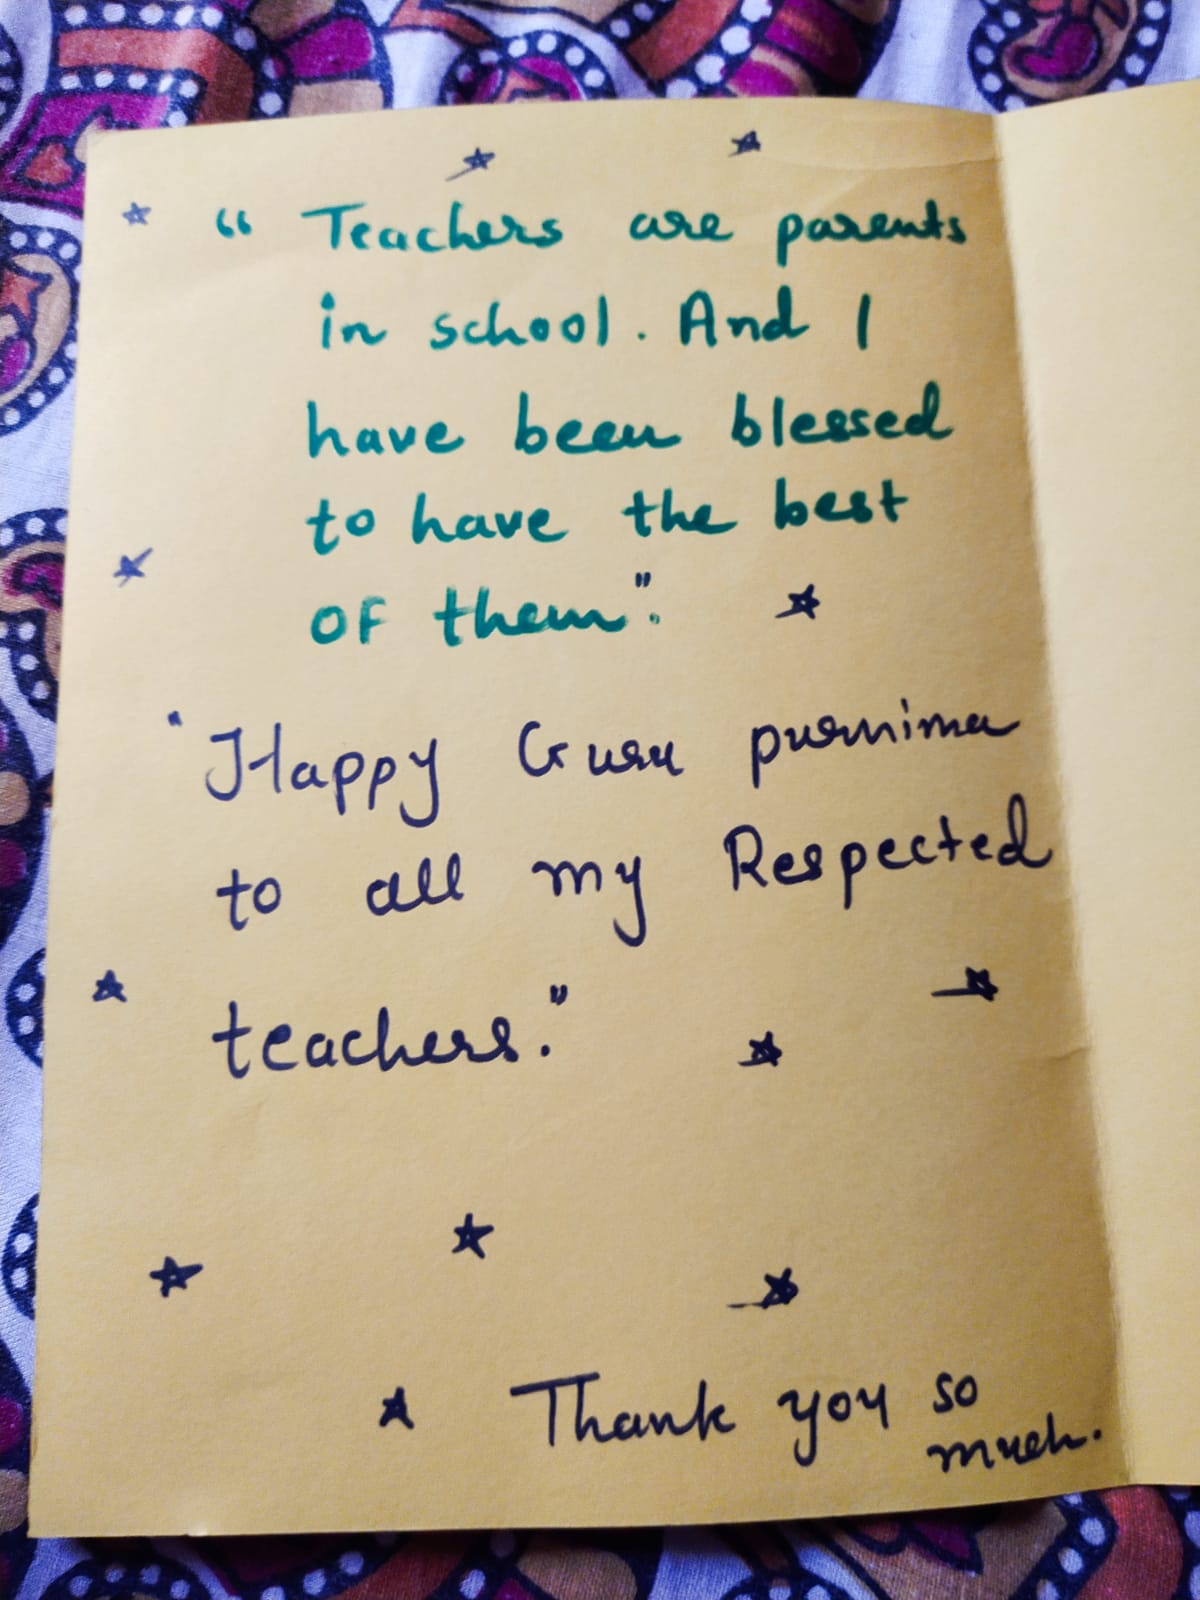 “ Teachers are parents
in school. And I
have been blessed
to have the best
of them".
"Happy Guru purnima
to all my Respected
teachers."
Thank you so
much.